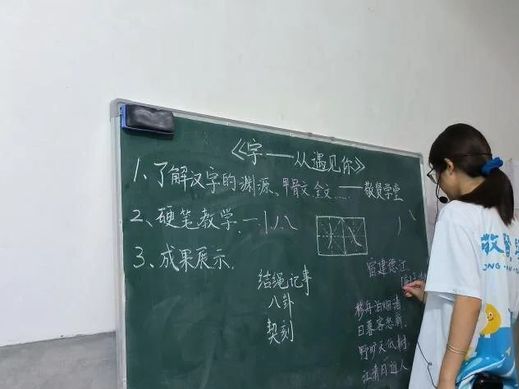 《字——从遇见你》
1、了解汉字的渊源、甲骨文、金文……——敬贤学堂
2、硬笔教学、一丨丿八
丿乀
3、成果展示.
结绳记事
八卦
契刻
宿建德江
移舟泊烟渚
日暮客愁新
野旷天低树
江清月近人
敬